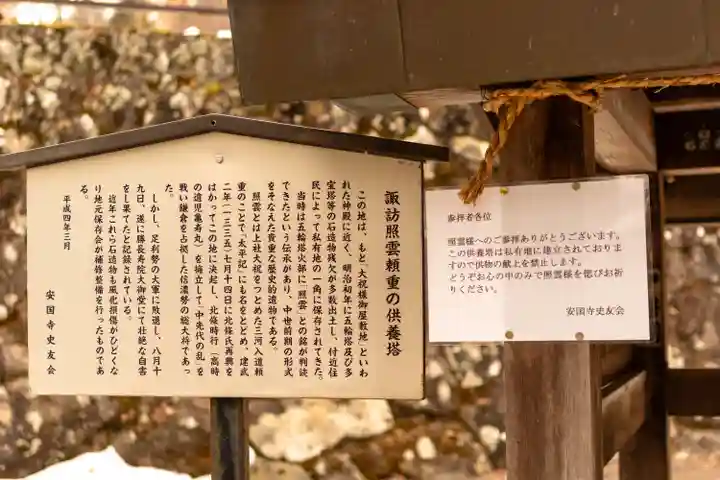 諏訪照雲頼重の供養塔
この地は、もと「大祝様御屋敷地」といわ
れた神殿に近く、明治初年に五輪塔及び多
宝塔等の石造物残欠が多数出土し、付近住
民によって私有地の一角に保存されてきた。
当時は五輪塔火部に「照雲」との銘が判読
できたという伝承があり、中世前期の形式
をそなえた貴重な歴史的遺物である。
照雲とは上社大祝をつとめた三河入道頼
重のことで「太平記」にも名をとどめ、建武
二年(一三三五)七月十四日に北條氏再興を
はかってこの地に決起し、北條時行(高時
の遺児亀寿丸)を擁立して「中先代の乱」を
戦い鎌倉を占領した信濃勢の総大将であっ
た。
しかし、足利勢の大軍に敗退し、八月十
九日、遂に勝長寿院大御堂にて壮絶な自害
をし果てたと記録されている。
近年これら石造物も風化損傷がひどくな
り地元保存会が補修整備を行ったものであ
る。
平成四年三月
安国寺史友会
参拝者各位
照雲様へのご参拝ありがとうございます。
この供養塔は私有地に建立されておりま
すので供物の献上を禁止します。
どうぞお心の中のみで照雲様を偲びお祈
りください。
安国寺史友会